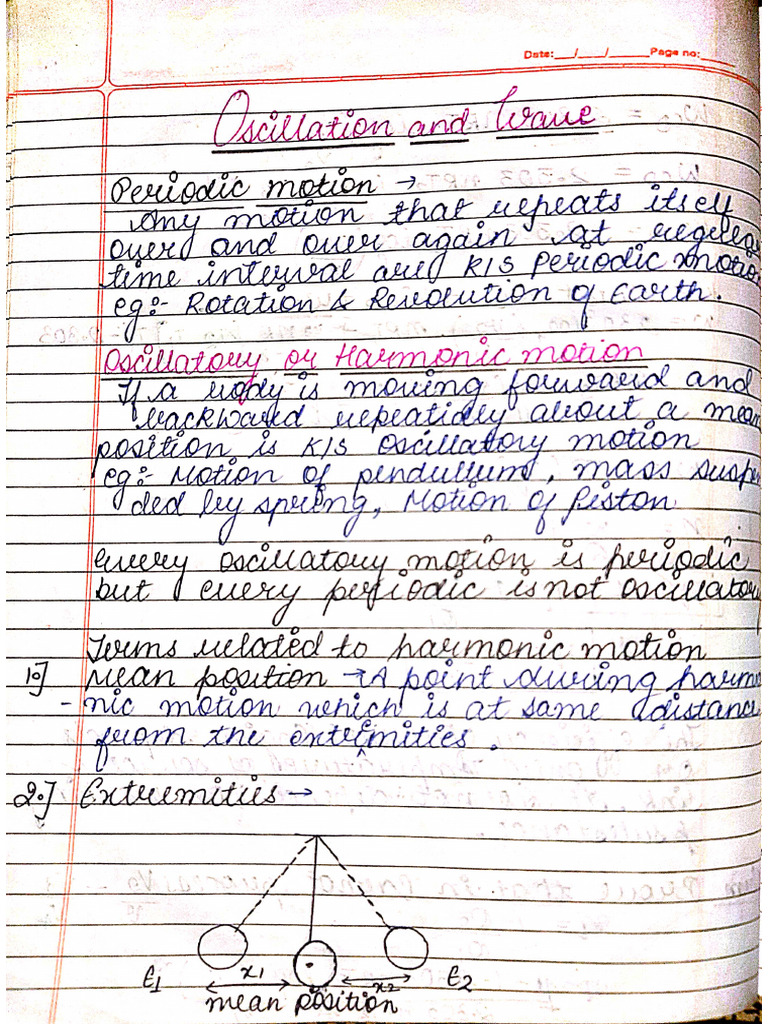 Date:___/___/_____Page no:_____
Oscillation and Wave
Periodic motion →
Any motion that repeats itself
over and over again at regular
time interval are K/S Periodic motion
eg:- Rotation & Revolution of Earth.
Oscillatory or Harmonic motion
If a body is moving forward and
backward repeatidly about a mean
position is K/S oscillatory motion
eg:- Motion of pendullum, mass suspen
ded by spring, Motion of Piston
every oscillatory motion is periodic
but every periodic is not oscillatory
Terms related to harmonic motion
1.] Mean position → A point during harmo
- nic motion which is at same distance
from the extremities.
2.] Extremities →
E1 x1 x2 E2
mean position